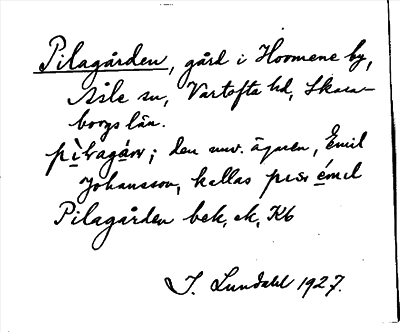 Pilagården, gård i Hoomene by,
Åsle sn, Vartofta hd, Skara-
borgs län.
pìlagáṇ; den nuv. ägaren, Emil
Johansson, kallas pɩsɩ émɩl
Pilagården bek, ek, Kb
J. Lundahl 1927.